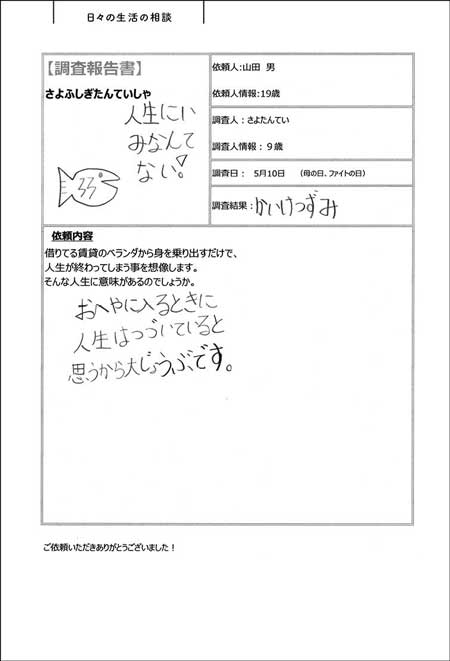 日々の生活の相談
【調査報告書】
さよふしぎたんていしゃ
人生にい
みなんて
ない!
33
依頼人:山田 男
依頼人情報:19歳
調査人：さよたんてい
調査人情報：９歳
調査日： 5月10日 (母の日、ファイトの日)
調査結果：かいけつずみ
依頼内容
借りてる賃貸のベランダから身を乗り出すだけで、
人生が終わってしまう事を想像します。
そんな人生に意味があるのでしょうか。
おへやに入るときに
人生はつづいていると
思うから大じょうぶです。
ご依頼いただきありがとうございました！